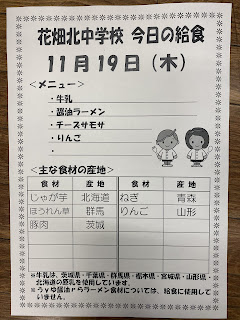 花畑北中学校 今日の給食
11月19日（木）
＜メニュー＞
・牛乳
・醤油ラーメン
・チーズサモサ
・りんご
・
＜主な食材の産地＞
食材 産地 食材 産地
じゃが芋 北海道 ねぎ 青森
ほうれん草 群馬 りんご 山形
豚肉 茨城
※牛乳は、茨城県・千葉県・群馬県・栃木県・宮城県・山形県・
北海道の原乳を使用しています。
食材については、給食に使用して
いません。